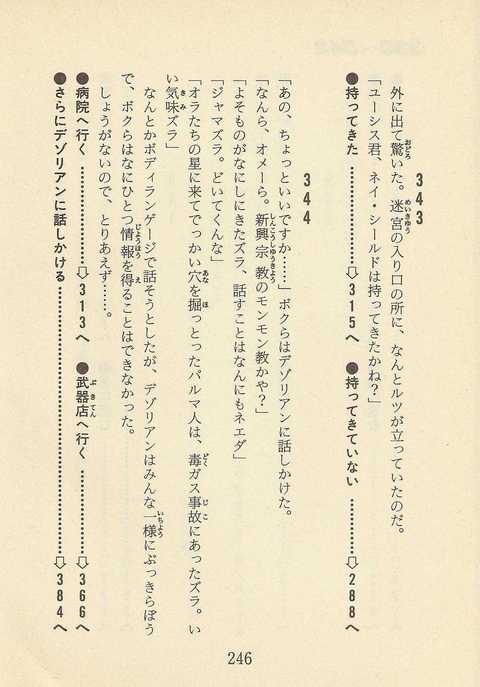 343
外に出て驚いた。迷宮の入り口の所に、なんとルツが立っていたのだ。
「ユーシス君、ネイ・シールドは持ってきたかね？」
●持ってきた……⇨315へ　●持ってきていない……⇨288へ
344
「あの、ちょっといいですか……」ボクらはデゾリアンに話しかけた。
「なんら、オメーら。新興宗教のモンモン教かや？」
「よそものがなにしにきたズラ、話すことはなんにもネエダ」
「ジャマズラ。どいてくんな」
「オラたちの星に来てでっかい穴を掘っとったパルマ人は、毒ガス事故にあったズラ。い
い気味ズラ」
なんとかボディランゲージで話そうとしたが、デゾリアンはみんな一様にぶっきらぼう
で、ボクらはなにひとつ情報を得ることはできなかった。
しょうがないので、とりあえず……。
●病院へ行く……⇨313へ　●武器店へ行く……⇨366へ
●さらにデゾリアンに話しかける……⇨384へ
246